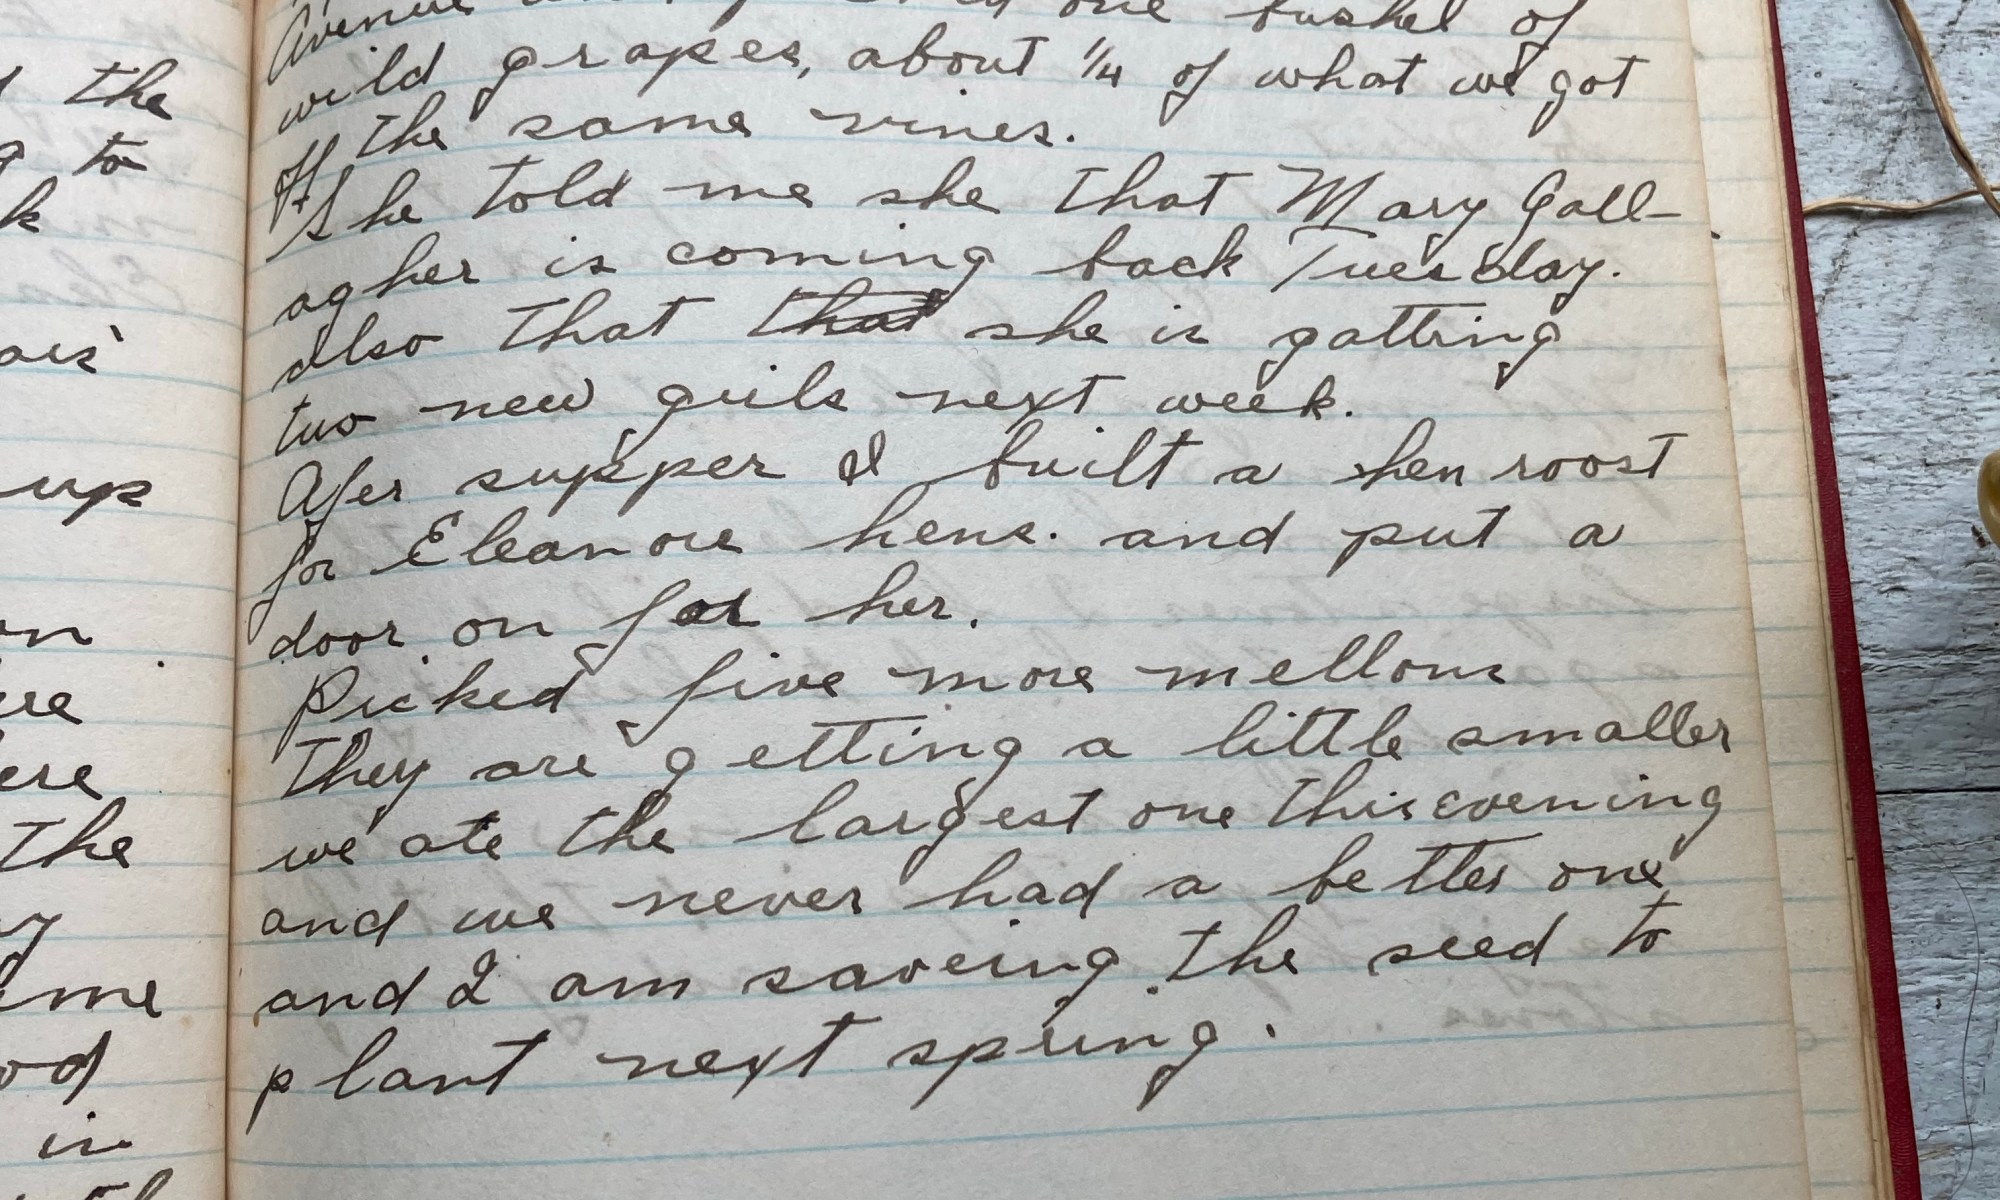 the
to
k
up
on
ere
the
me
od
in
Avenue one bushel of
wild grapes, about 1/4 of what we got
off the same vines.
She told me she that Mary Gall-
agher is coming back Tuesday.
also that that she is gatting
two new girls next week.
Afer supper I built a hen roost
for Eleanore hens. and put a
door on for her.
Picked five more mellons
They are getting a little smaller
we ate the largest one this evening
and we never had a better one
and I am saveing the seed to
plant next spring.